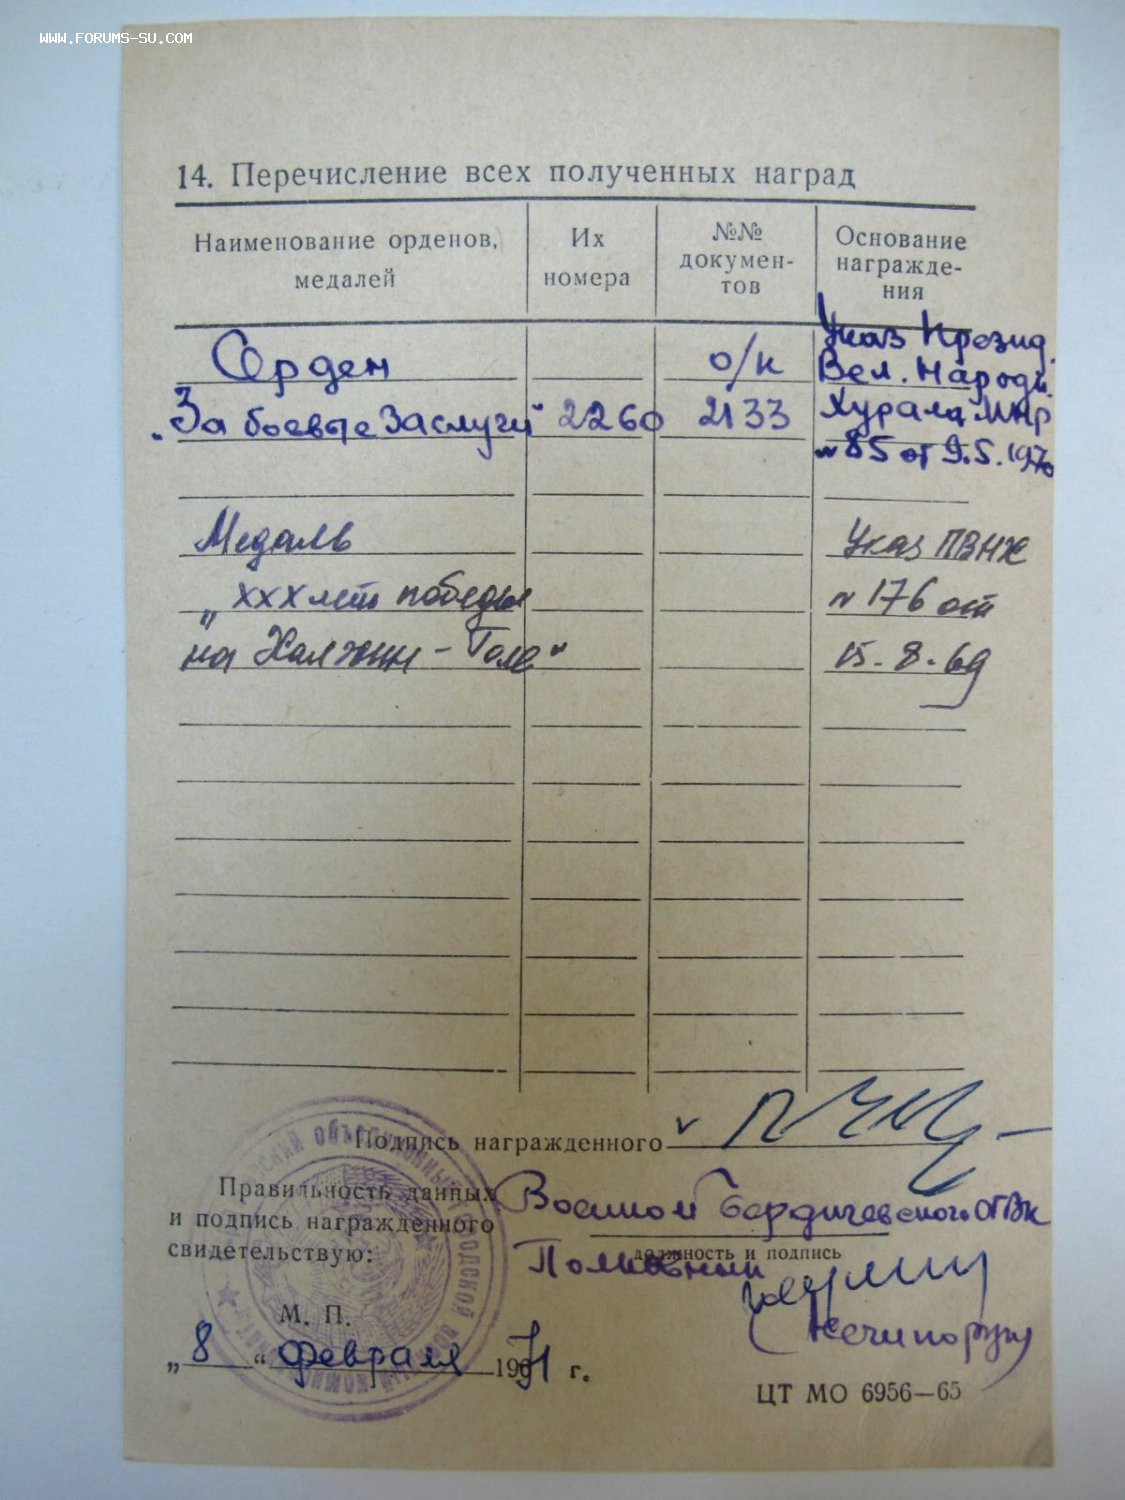 WWW.FORUMS-SU.COM
14. Перечисление всех полученных наград
Наименование орденов, медалей
Их номера
№№ докумен-
тов
Основание
награжде-
ния
Орден
о/к
Указ Презид.
Вел. Народн.
„За боевые Заслуги“ 2260 2133
Хурала МНР
№ 85 от 9.5.1970
Медаль
Указ ПВНХ
„XXX лет победы
№ 176 от
на Халхин-Голе“
15.8.69
Подпись награжденного
Правильность данных
и подпись награжденного
свидетельствую:
Военком Бердичевского ОГВК
должность и подпись
Полковник
(Нечипорук)
М. П.
„8“ февраля 1971 г.
ЦТ МО 6956—65